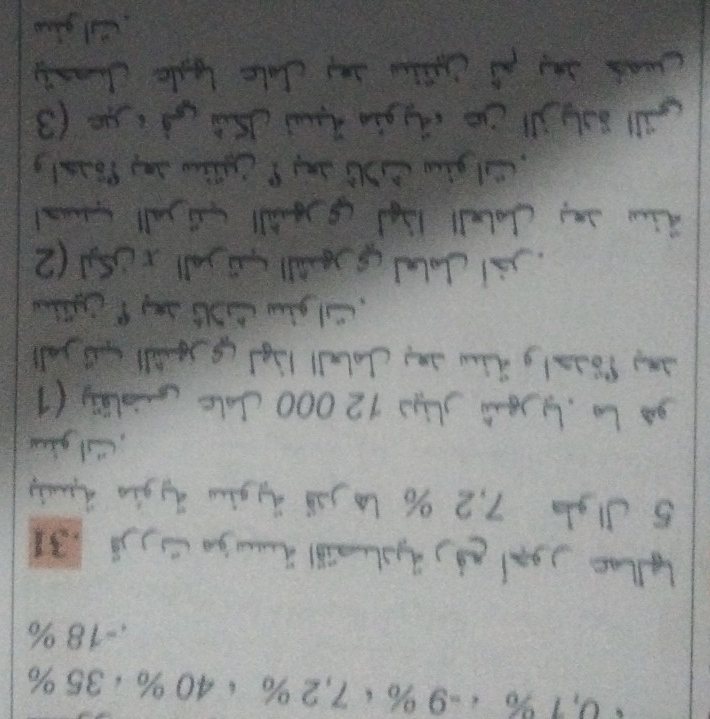 0,1 % ، -9 % ، 7,2 % ، 40 % ، 35 %
-18 %.
31. قررت مؤسسة اقتصادية رفع أجور عمالها
بنسبة مئوية سنوية قدرها 7,2 % طوال 5
سنوات.
1) يتقاضى عامل 12 000 دينار شهريا. ما هو
المرتب الشهري لهذا العامل بعد سنة واحدة؟ بعد
سنتين؟ بعد ثلاث سنوات.
2) ليكن x المرتب الشهري لعامل آخر.
احسب المرتب الشهري لهذا العامل بعد سنة
واحدة؟ بعد سنتين؟ بعد ثلاث سنوات.
3) عبر، في شكل نسبة مئوية، عن الزيادة التي
يتحصل عليها عامل بعد سنتين ثم بعد خمس
سنوات.